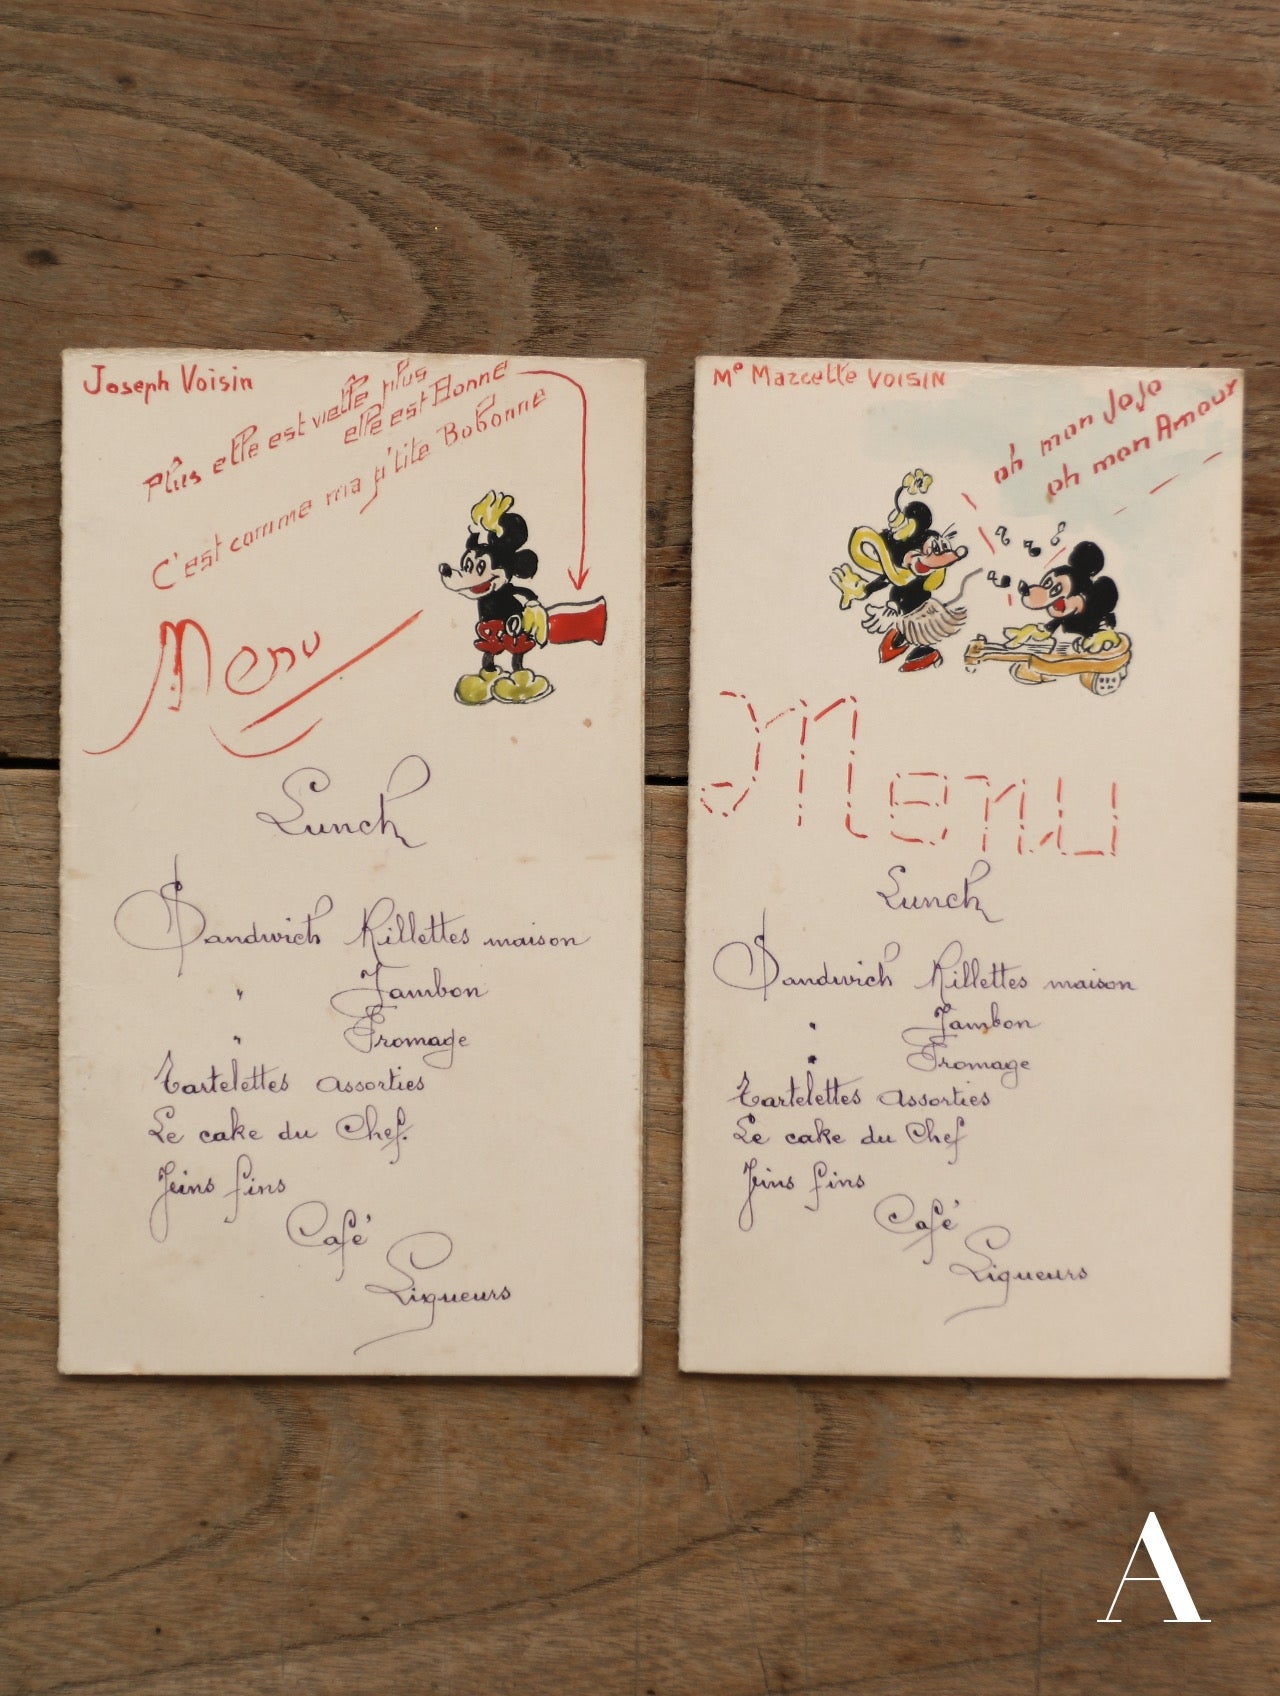 Joseph Voisin
Plus elle est vielle plus
elle est Bonne
C'est comme ma p'tite Bobonne
Menu
Lunch
Sandwich Rillettes maison
" Jambon
" Fromage
Tartelettes assorties
Le cake du Chef.
Vins fins
Café
Liqueurs
Me Marcelle VOISIN
oh mon JoJo
oh mon Amour
Menu
Lunch
Sandwich Rillettes maison
" Jambon
" Fromage
Tartelettes assorties
Le cake du Chef
Vins fins
Café
Liqueurs
A